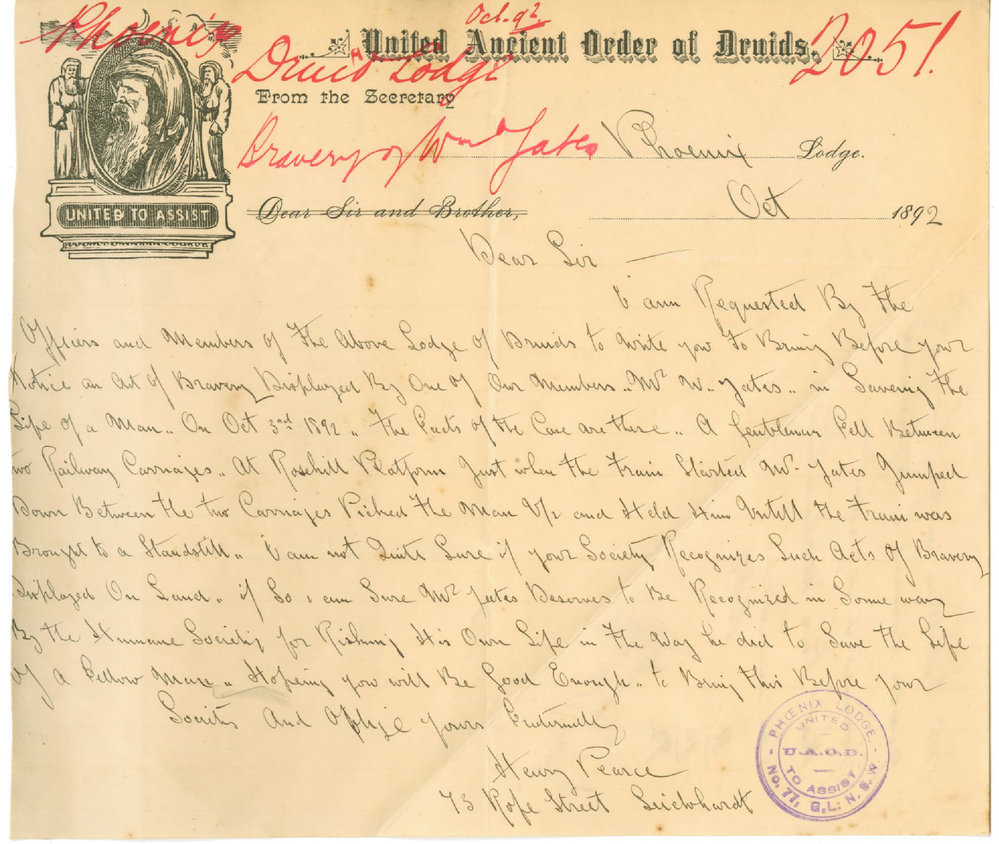 Oct. 92
Phoenix
United Ancient Order of Druids.
2051.
Druid Lodge
From the Secretary
Bravery of Wm Yates
Phoenix Lodge.
UNITED TO ASSIST
Dear Sir and Brother,
Oct 1892
Dear Sir
I am Requested By The
Officers and Members of The Above Lodge of Druids to Write you To Bring Before your
Notice an Act of Bravery Displayed By One of Our Members .. Mr W. Yates .. in Saveing The
Life of a Man .. On Oct 3rd 1892 .. The Facts of the Case are these .. A Gentleman Fell Between
two Railway Carriages .. At Rosehill Platform Just when The Train Started Mr Yates Jumped
Down Between the two Carriages Picked The Man Up and Held Him Untill The Train was
Brought to a Standstill .. I am not Quite Sure if your Society Recognizes Such Acts of Bravery
Displayed On Land .. if So i am Sure Mr Yates Deserves to Be Recognized in Some way
By the Humane Society for Risking His Own Life in The Way he did to Save the Life
Of a Fellow Man .. Hopeing you will Be Good Enough .. to Bring This Before your
Society And Oblige yours Fraternally
Henry Pearce
73 Rofe Street Leichhardt
PHŒNIX LODGE,
UNITED
U.A.O.D.
TO ASSIST
No. 77, G.L. N.S.W